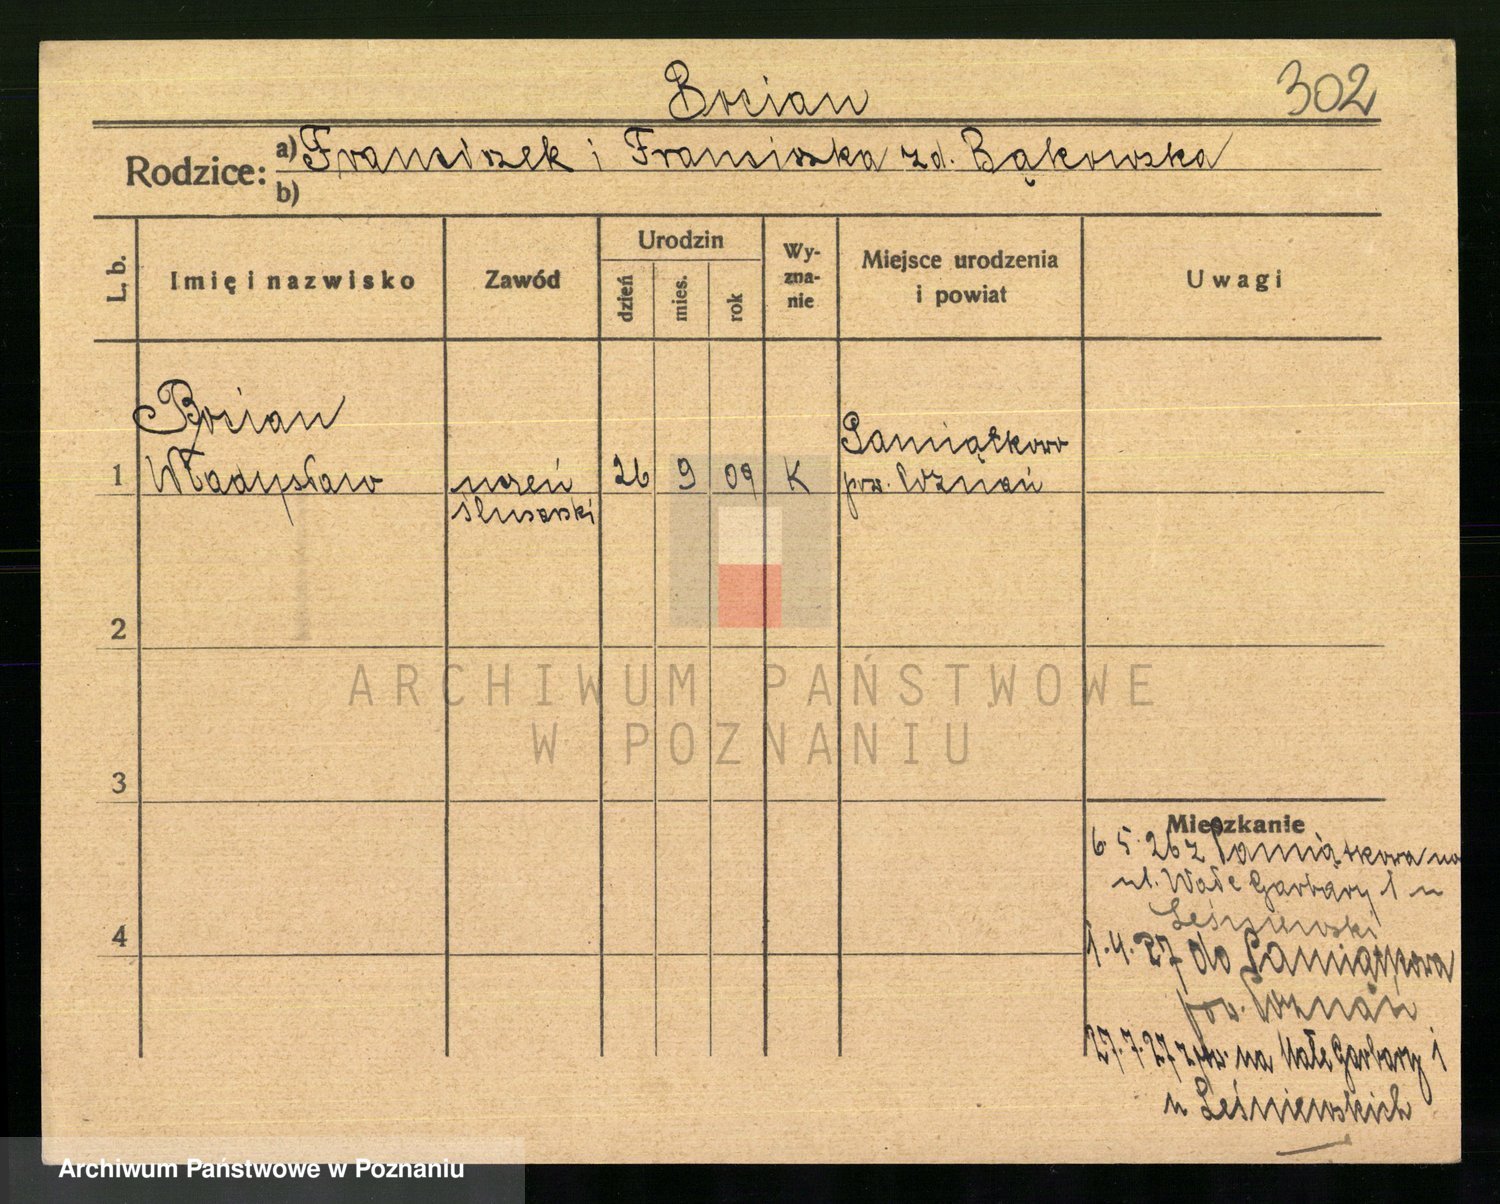 Bocian
302
Rodzice: a) Franciszek i Franciszka zd. Bąkowska
b)
L. b.
Imię i nazwisko
Zawód
Urodzin
dzień
mies.
rok
Wy-
zna-
nie
Miejsce urodzenia
i powiat
Uwagi
Bocian
Pamiątkowo
1 Władysław uczeń 26 9 09 K pow. Poznań
ślusarski
2
ARCHIWUM PAŃSTWOWE
W POZNANIU
3
Mieszkanie
6.5.26 z Pamiątkowa na
ul. Małe Garbary 1 u
Leśniewski
4
1.4.27 do Pamiątkowa
pow. Poznań
27.7.27 z pow. na Małe Garbary 1
u Leśniewskich
Archiwum Państwowe w Poznaniu